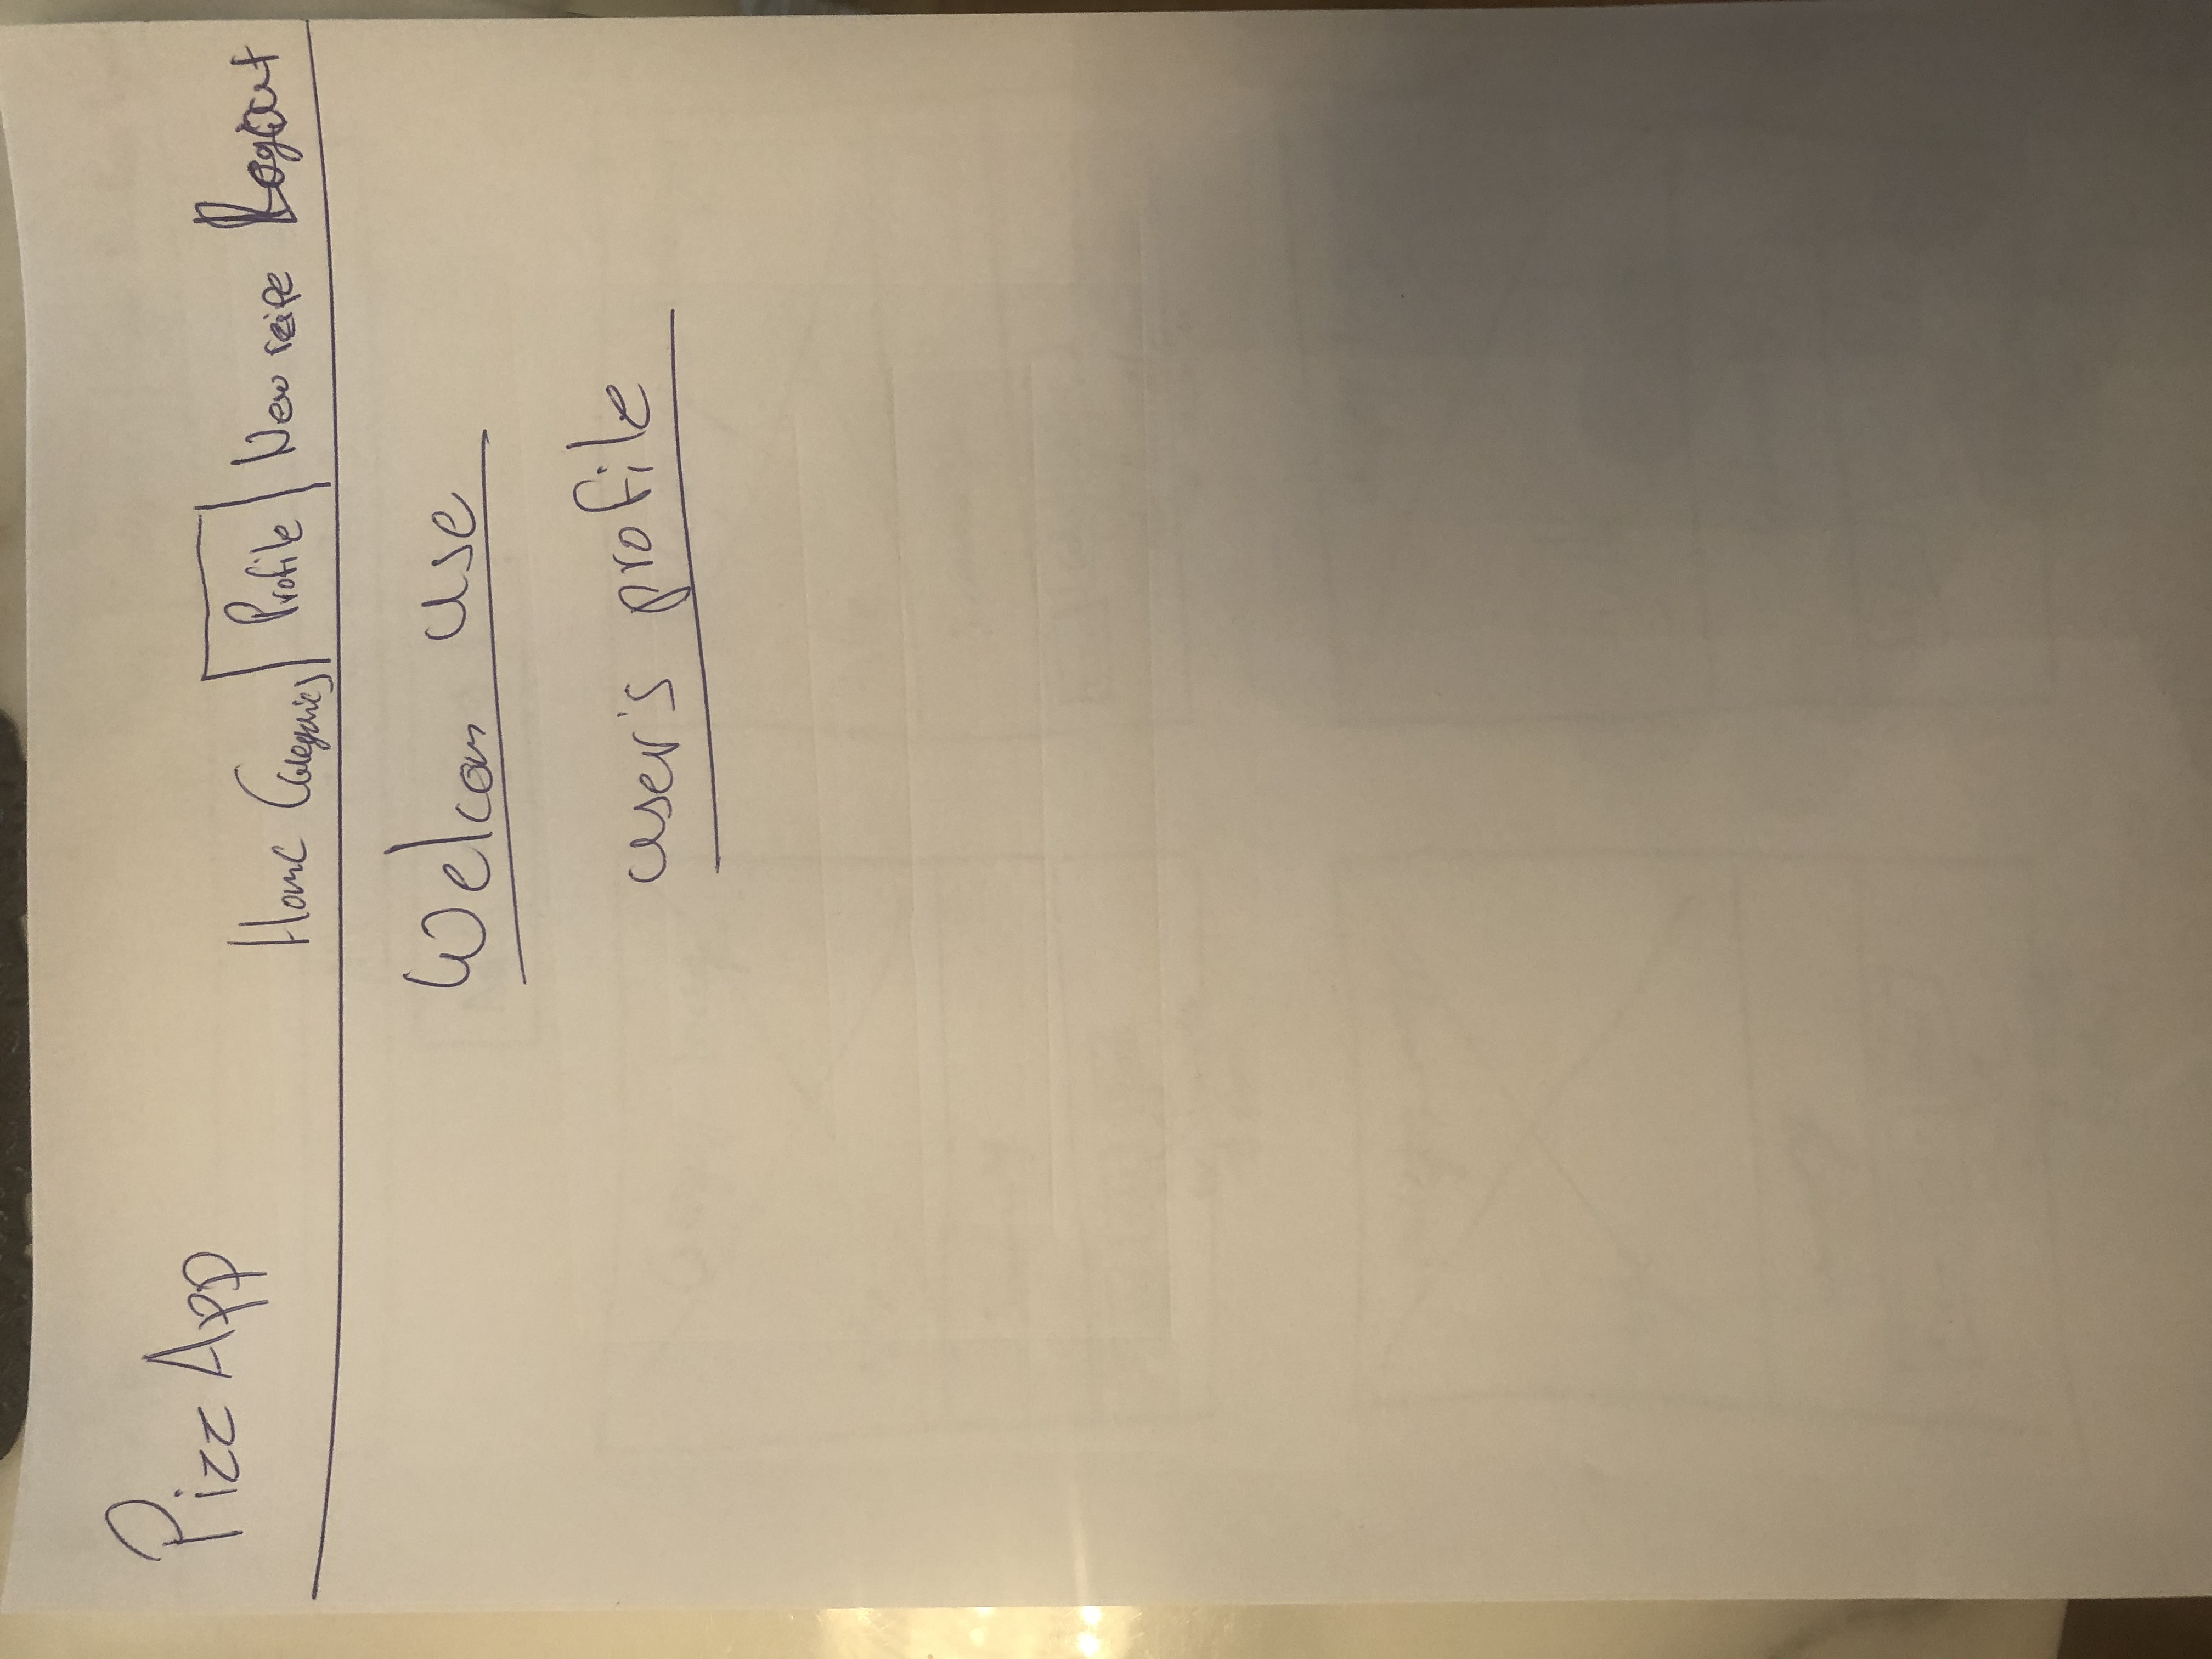 Pizz App
Home Categories Profile New reipe Logout
Welcom use
user's profile